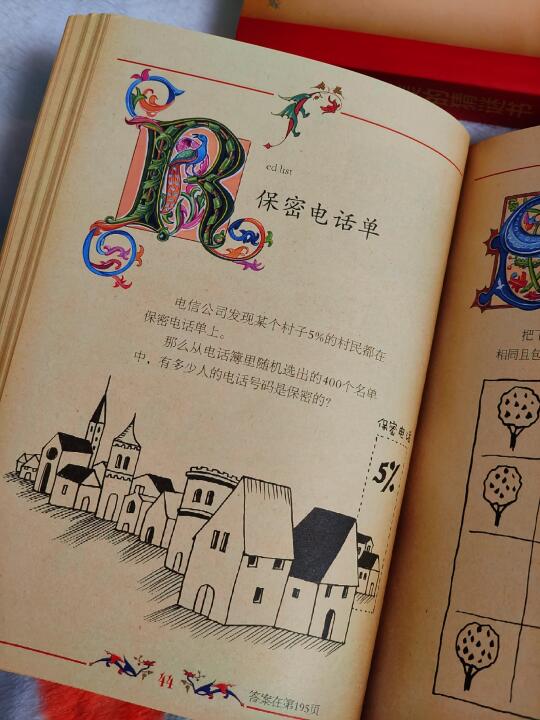 R
ed list
保密电话单
电信公司发现某个村子5%的村民都在
保密电话单上。
那么从电话簿里随机选出的400个名单
中，有多少人的电话号码是保密的?
保密电话
5%
44
答案在第195页
把
相同且包
的情谜书